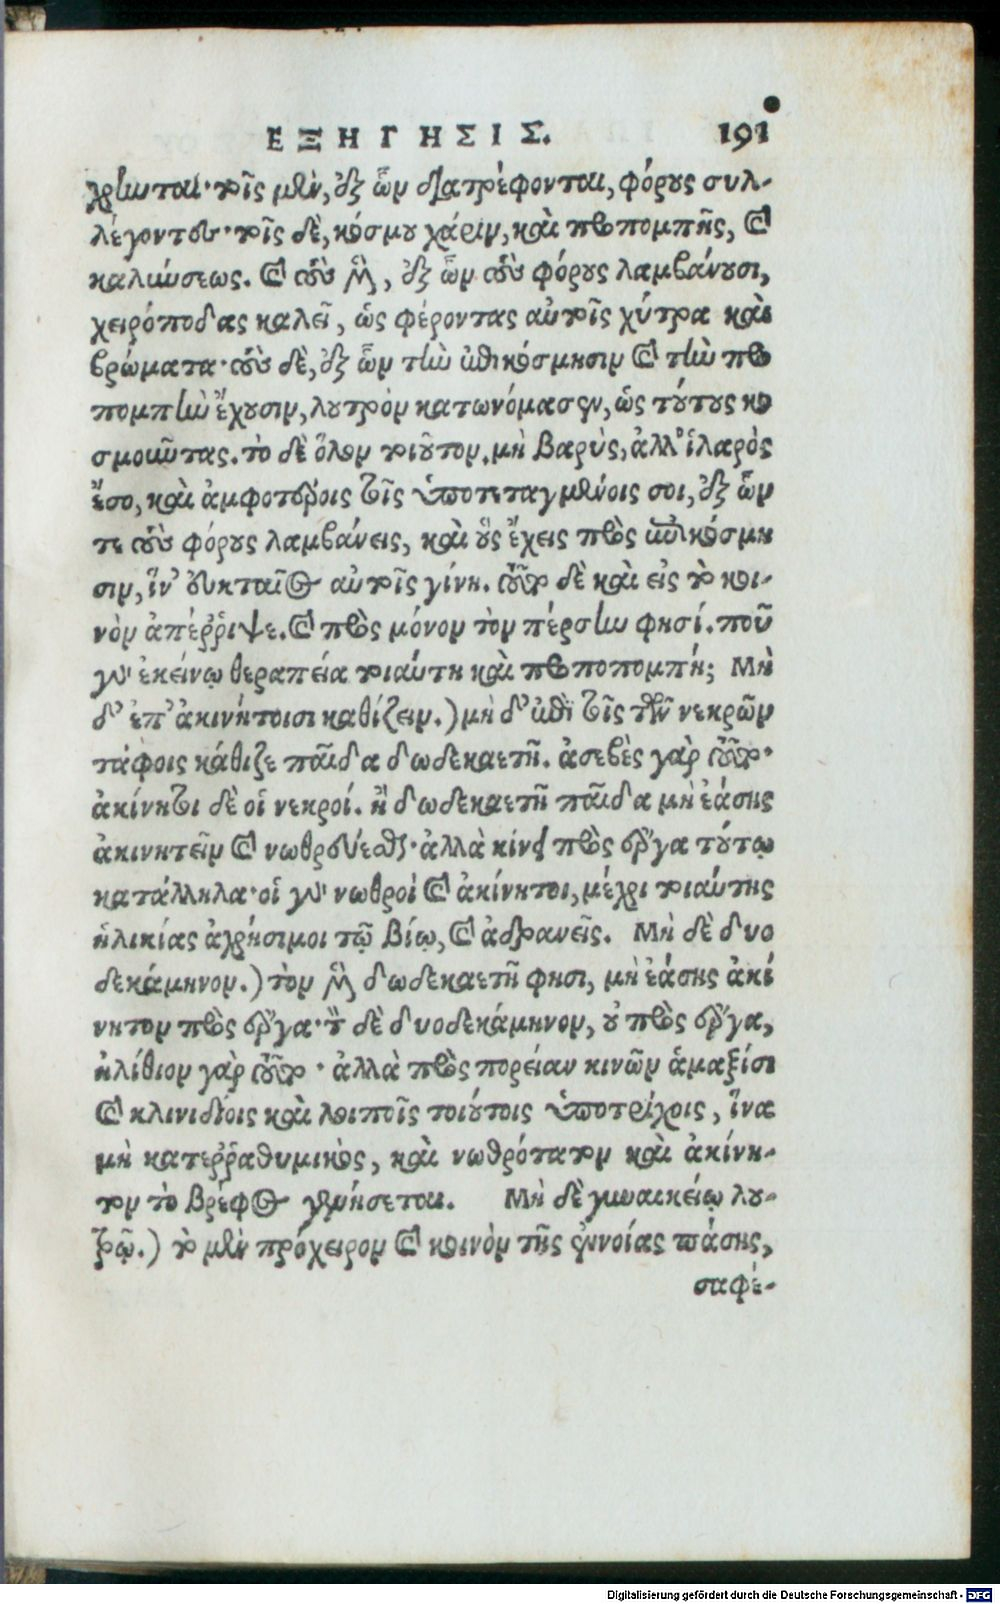 ΕΞΗΓΗΣΙΣ. 191
χρῶνται· τοῖς μὲν, ἐξ ὧν διατρέφονται, φόρους συλ-
λέγοντες· τοῖς δὲ, κόσμου χάριν, καὶ προπομπῆς, καὶ
καλλύσεως. καὶ τοὺς μὲν, ἐξ ὧν τοὺς φόρους λαμβάνουσι,
χειρόποδας καλεῖ, ὡς φέροντας αὐτοῖς χύτρα καὶ
βρώματα· τοὺς δὲ, ἐξ ὧν τὴν ἐπικόσμησιν καὶ τὴν προ
πομπὴν ἔχουσιν, λουτρὸν κατωνόμασεν, ὡς τούτους κο
σμοῦντας. τὸ δὲ ὅλον τοιοῦτον. μὴ βαρὺς, ἀλλ' ἱλαρὸς
ἔσο, καὶ ἀμφοτέροις τοῖς ὑποτεταγμένοις σοι, ἐξ ὧν
τε τοὺς φόρους λαμβάνεις, καὶ οὓς ἔχεις πρὸς ἐπικόσμη
σιν, ἵν' εὐκταῖος αὐτοῖς γίνῃ. τοῦτο δὲ καὶ εἰς τὸ κοι-
νὸν ἀπέῤῥιψε. καὶ πρὸς μόνον τὸν πέρσην φησί. ποῦ
γὰρ ἐκείνῳ θεραπεία τοιαύτη καὶ προπομπή; Μὴ
δ' ἐπ' ἀκινήτοισι καθίζειν.) μὴ δ' ἐπὶ τοῖς τῶν νεκρῶν
τάφοις κάθιζε παῖδα δωδεκαετῆ. ἀσεβὲς γὰρ τοῦτο·
ἀκίνητοι δὲ οἱ νεκροί. ἢ δωδεκαετῆ παῖδα μὴ ἐάσῃς
ἀκινητεῖν καὶ νωθρεύεσθαι· ἀλλὰ κίνει πρὸς ἔργα τούτῳ
κατάλληλα· οἱ γὰρ νωθροὶ καὶ ἀκίνητοι, μέχρι τοιαύτης
ἡλικίας ἀχρήσιμοι τῷ βίῳ, καὶ ἀδρανεῖς. Μὴ δὲ δυο
δεκάμηνον.) τὸν μὲν δωδεκαετῆ φησι, μὴ ἐάσῃς ἀκί
νητον πρὸς ἔργα· τὸν δὲ δυοδεκάμηνον, οὐ πρὸς ἔργα,
ἠλίθιον γὰρ τοῦτο· ἀλλὰ πρὸς πορείαν κινῶν ἁμαξίσι
καὶ κλινιδίοις καὶ λοιποῖς τοιούτοις ὑποτρίχοις, ἵνα
μὴ κατεῤῥαθυμικὸς, καὶ νωθρότατον καὶ ἀκίνη-
τον τὸ βρέφος γενήσεται. Μὴ δὲ γυναικείῳ λου-
τρῷ.) τὸ μὲν πρόχειρον καὶ κοινὸν τῆς ἐννοίας πάσης,
σαφέ-
Digitalisierung gefördert durch die Deutsche Forschungsgemeinschaft - DFG